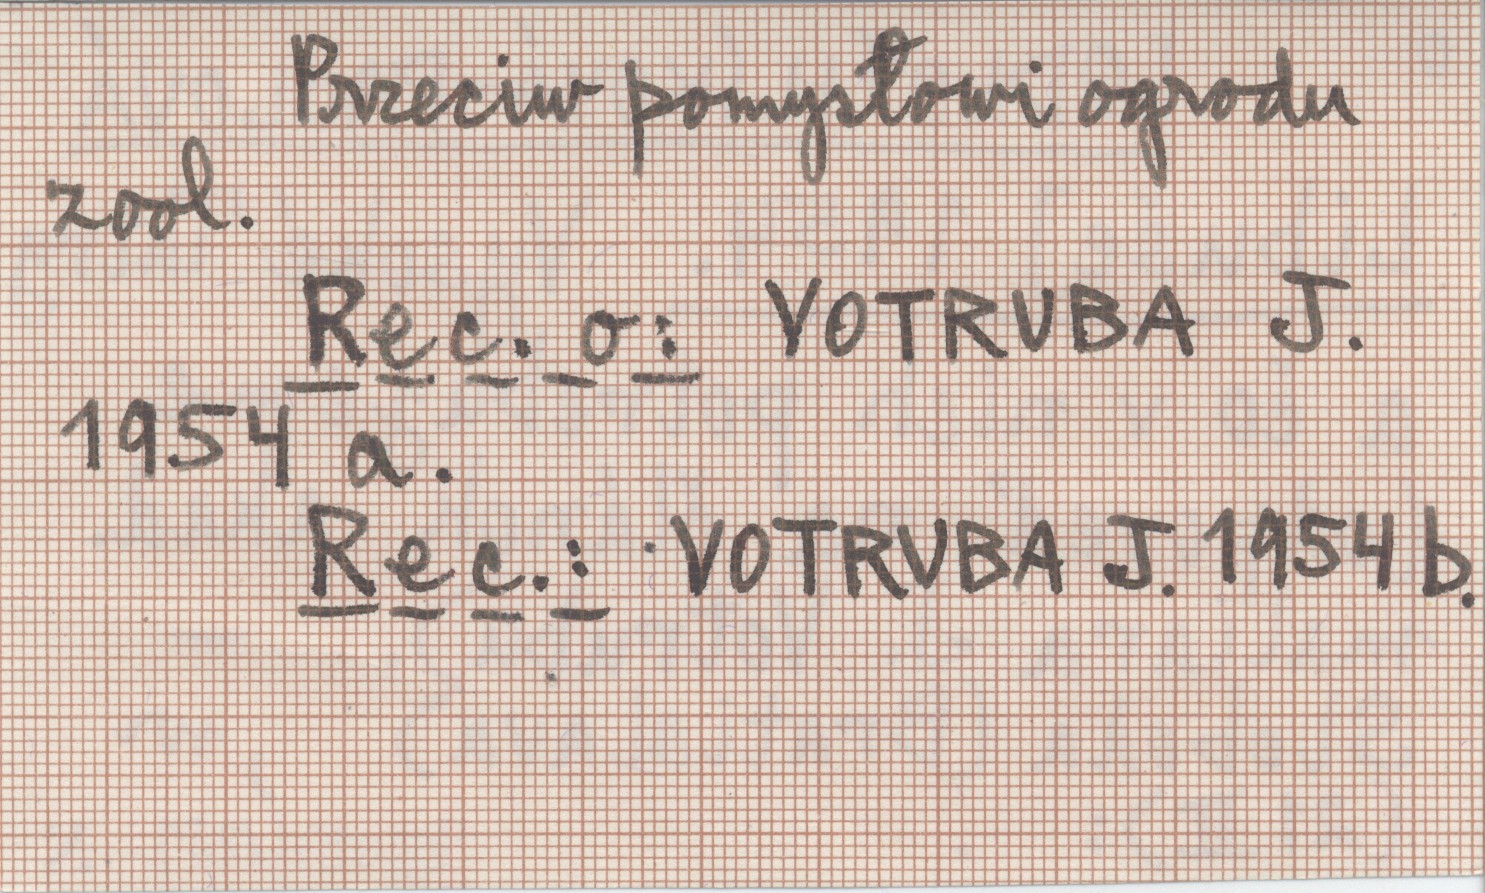 Przeciw pomysłowi ogrodu
zool.
Rec. o: VOTRUBA J.
1954 a.
Rec.: VOTRUBA J. 1954 b.